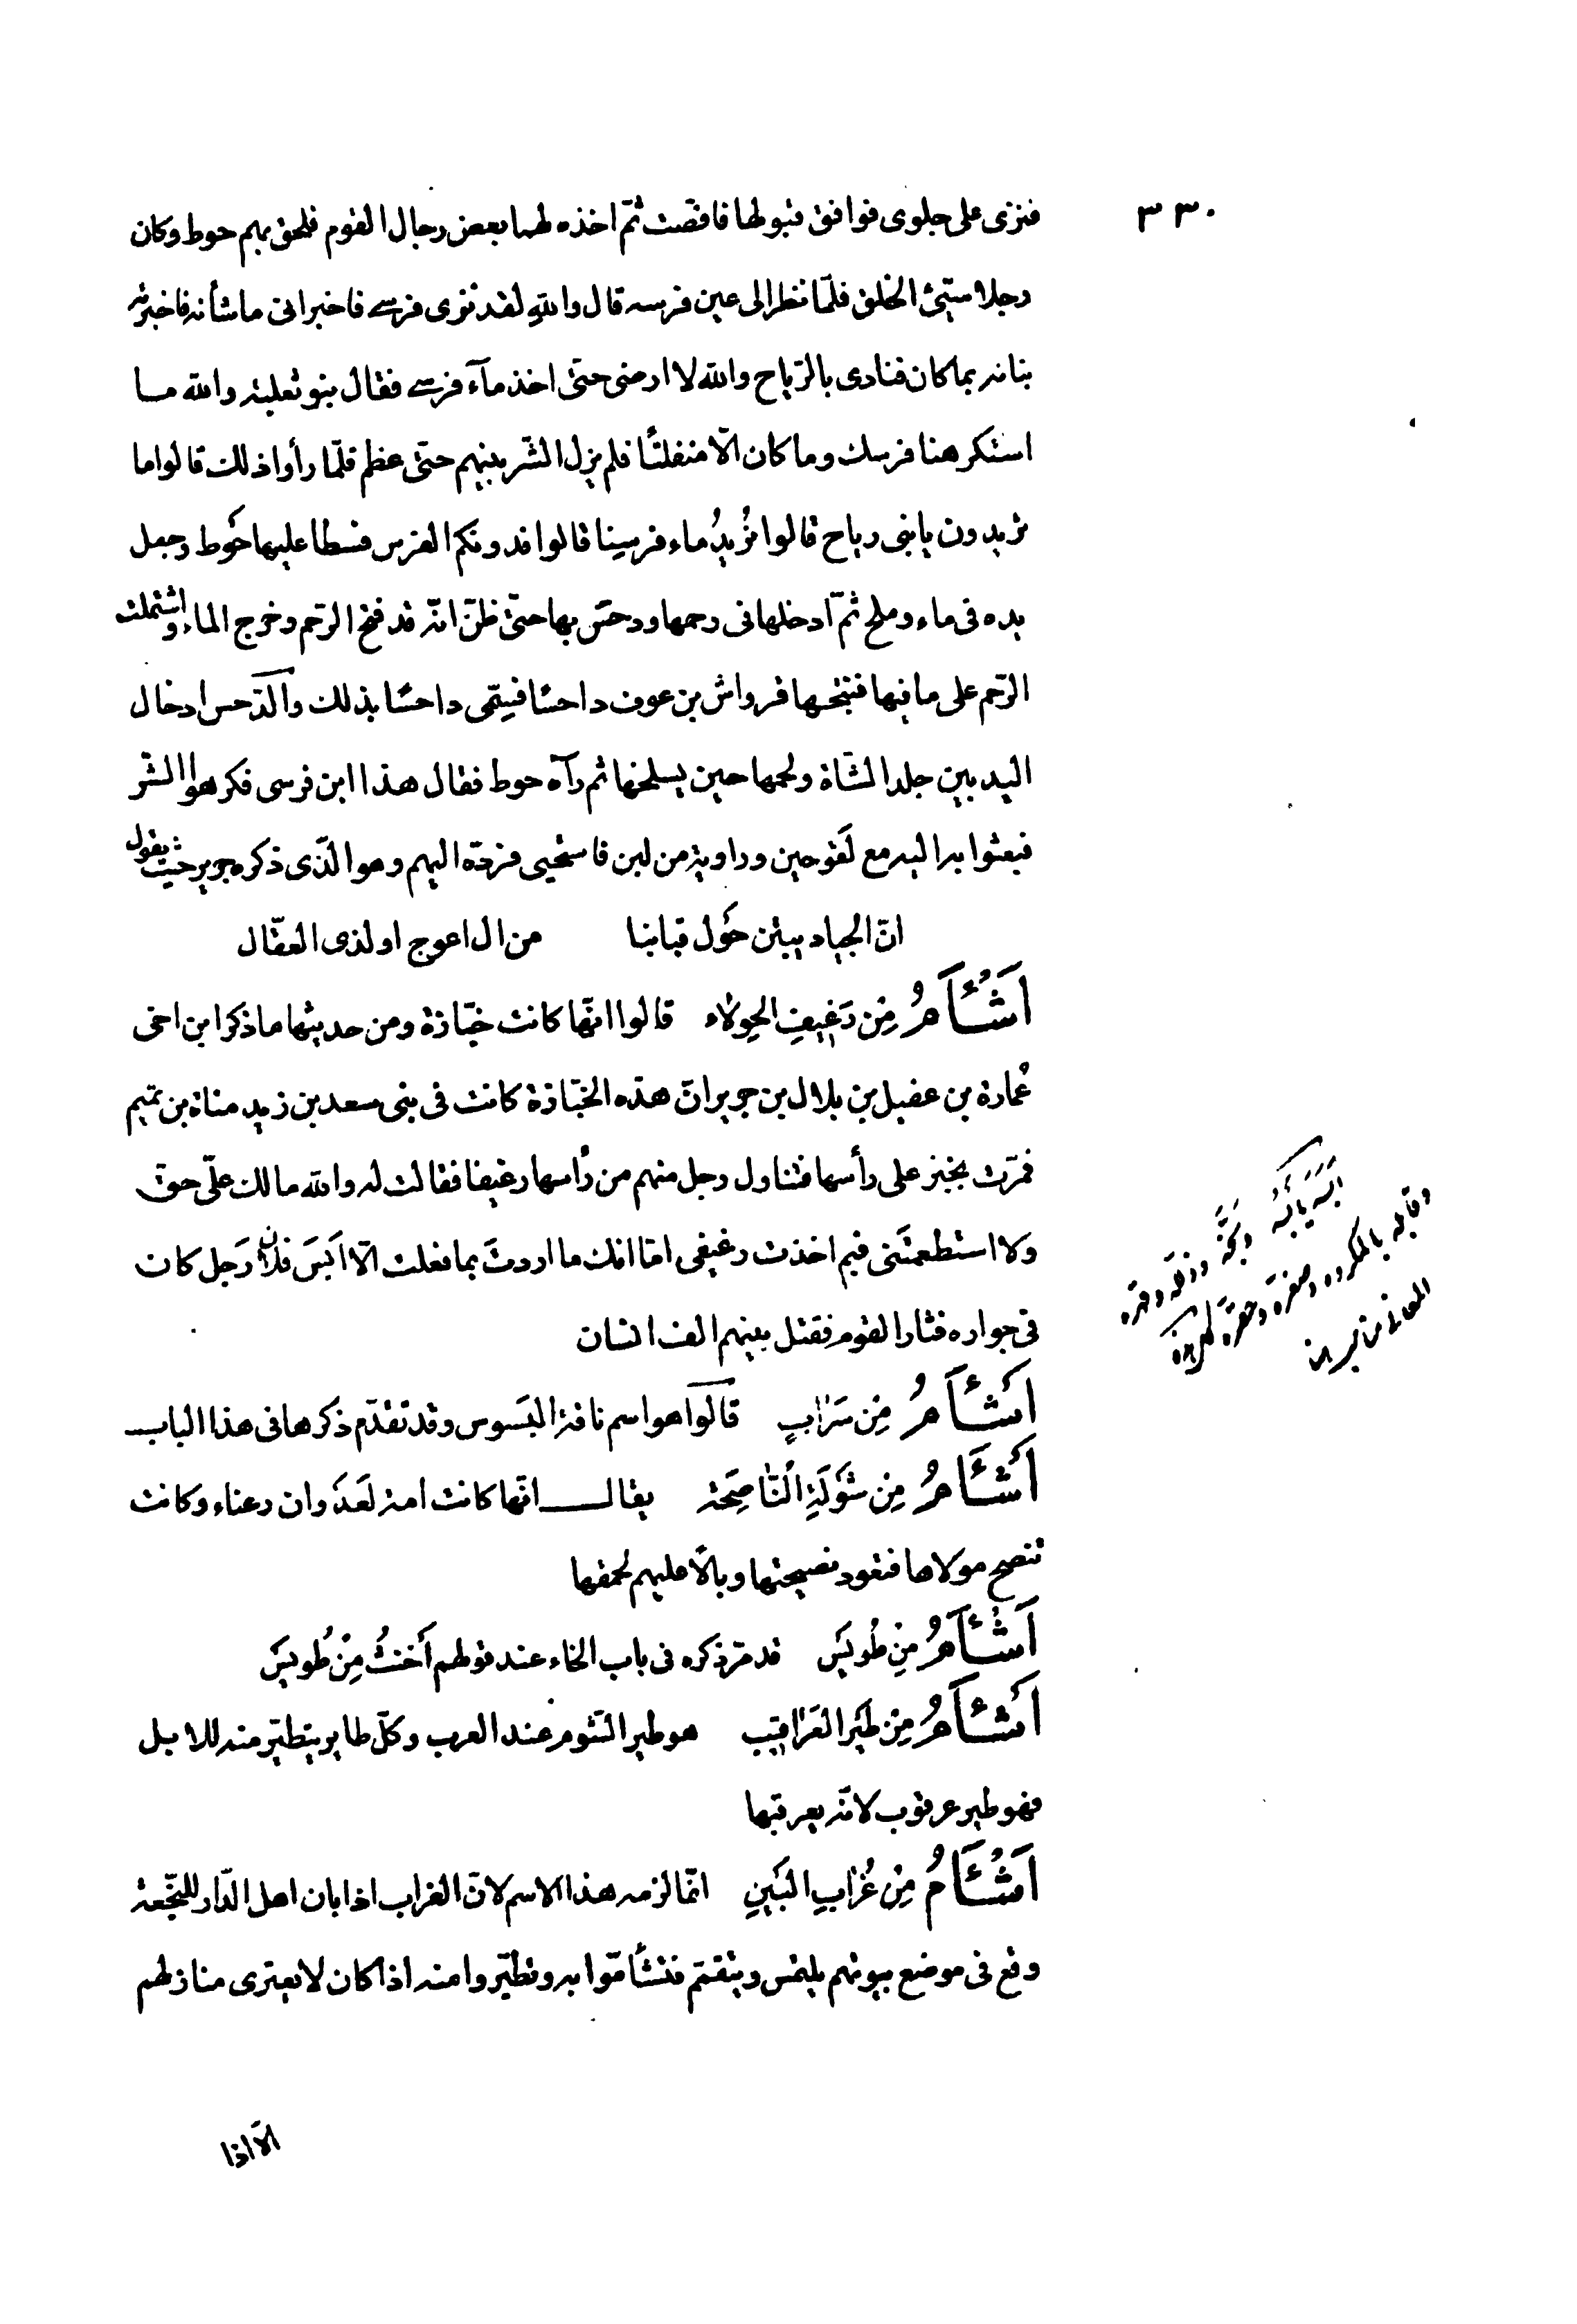 ٣٣٠
فنزى على جلوى فوافق قبولها فاقصّت ثمّ اخذه لهما بعض رجال القوم فلحق بهم حوط وكان
رجلا سيّئ الخلق فلمّا نظر الى عين فرسه قال واللّه لقد نزى فرسى فاخبرانى ما شأنه فاخبرته
بنانه بما كان فنادى بالرّياح واللّه لا ارضى حتّى اخذ مآء فرسى فقال بنو ثعلبة واللّه ما
استكرهنا فرسك وما كان الّا منفلتًا فلم يزل الشّر بينهم حتّى عظم فلمّا رأوا ذلك قالوا ما
تريدون يا بنى رياح قالوا نُريدُ ماء فرسينا قالوا فدونكم الفرس فسطا عليها حَوط وجعل
يده فى ماء وملح ثمّ ادخلها فى رحمها ودحَس بها حتّى ظنّ انّه قد فتح الرّحم وخرج الماء واشتملت
الرّحم على ما فيها فنتجها قرواش بن عوف داحسًا فسمّى داحسًا بذلك والدّحس ادخال
اليد بين جلد الشّاة ولحمها حين يسلخها ثم رآه حوط فقال هذا ابن فرسى فكرهوا الشّر
فبعثوا به اليه مع لَقوحين وراوية من لبن فاستحيى فردّه اليهم وهو الّذى ذكره جرير حيث يقول
انّ الجياد يبتن حَول قبابنا من ال اعوج او لذى العقّال
اَشْأَمُ مِن رَغيفِ الحِولاء قالوا انّها كانت خبّازة ومن حديثها ما ذكر ابن اخى
عُمارة بن عقيل بن بلال بن جرير انّ هذه الخبّازة كانت فى بنى سعد بن زيد مناة بن تميم
فمرّت بخبز على رأسها فتناول رجل منهم من رأسها رغيفا فقالت له واللّه مالك علىّ حق
ولا استطعمتَنى فبم اخذت رغيفى اما انّك ما اردتَ بما فعلت الّا اَبَسَ فلان رَجل كان
فى جواره فثار القوم فقتل بينهم الف انسان
اَشْأَمُ مِن سَرٰابِ قالوا هو اسم ناقة البَسوس وقد تقدّم ذكرها فى هذا الباب
اَشْأَمُ مِن شَوْلَةِ النّاصِحَة يقال انّها كانت امة لعَدوان رعناء وكانت
تنصح مولاها فتعود نصيحتها وبالًا عليهم لحمقها
اَشْأَمُ مِنْ طُوَيس قد مرّ ذكره فى باب الخاء عند قولهم اَخنثُ مِنْ طُوَيس
اَشْأَمُ مِن طَيرِ العَراقيب هو طير الشّوم عند العرب وكلّ طاير يتطيّر منه للابل
فهو طير عرقوب لانّه يعرقبها
اَشْأَمُ مِنْ غُرٰابِ البَينِ انّما لزمه هذا الاسم لانّ الغراب اذا بان اهل الدّار للنّجعة
وقع فى موضع بيوتهم يلتمس ويتقمّم فتشأموا به وتطيّروا منه اذا كان لا يعترى منازلهم
الّا اذا
اَبَسَه يَأبِسُه وبَكَته
وقابله بالمكروه وصغّره وحقّره